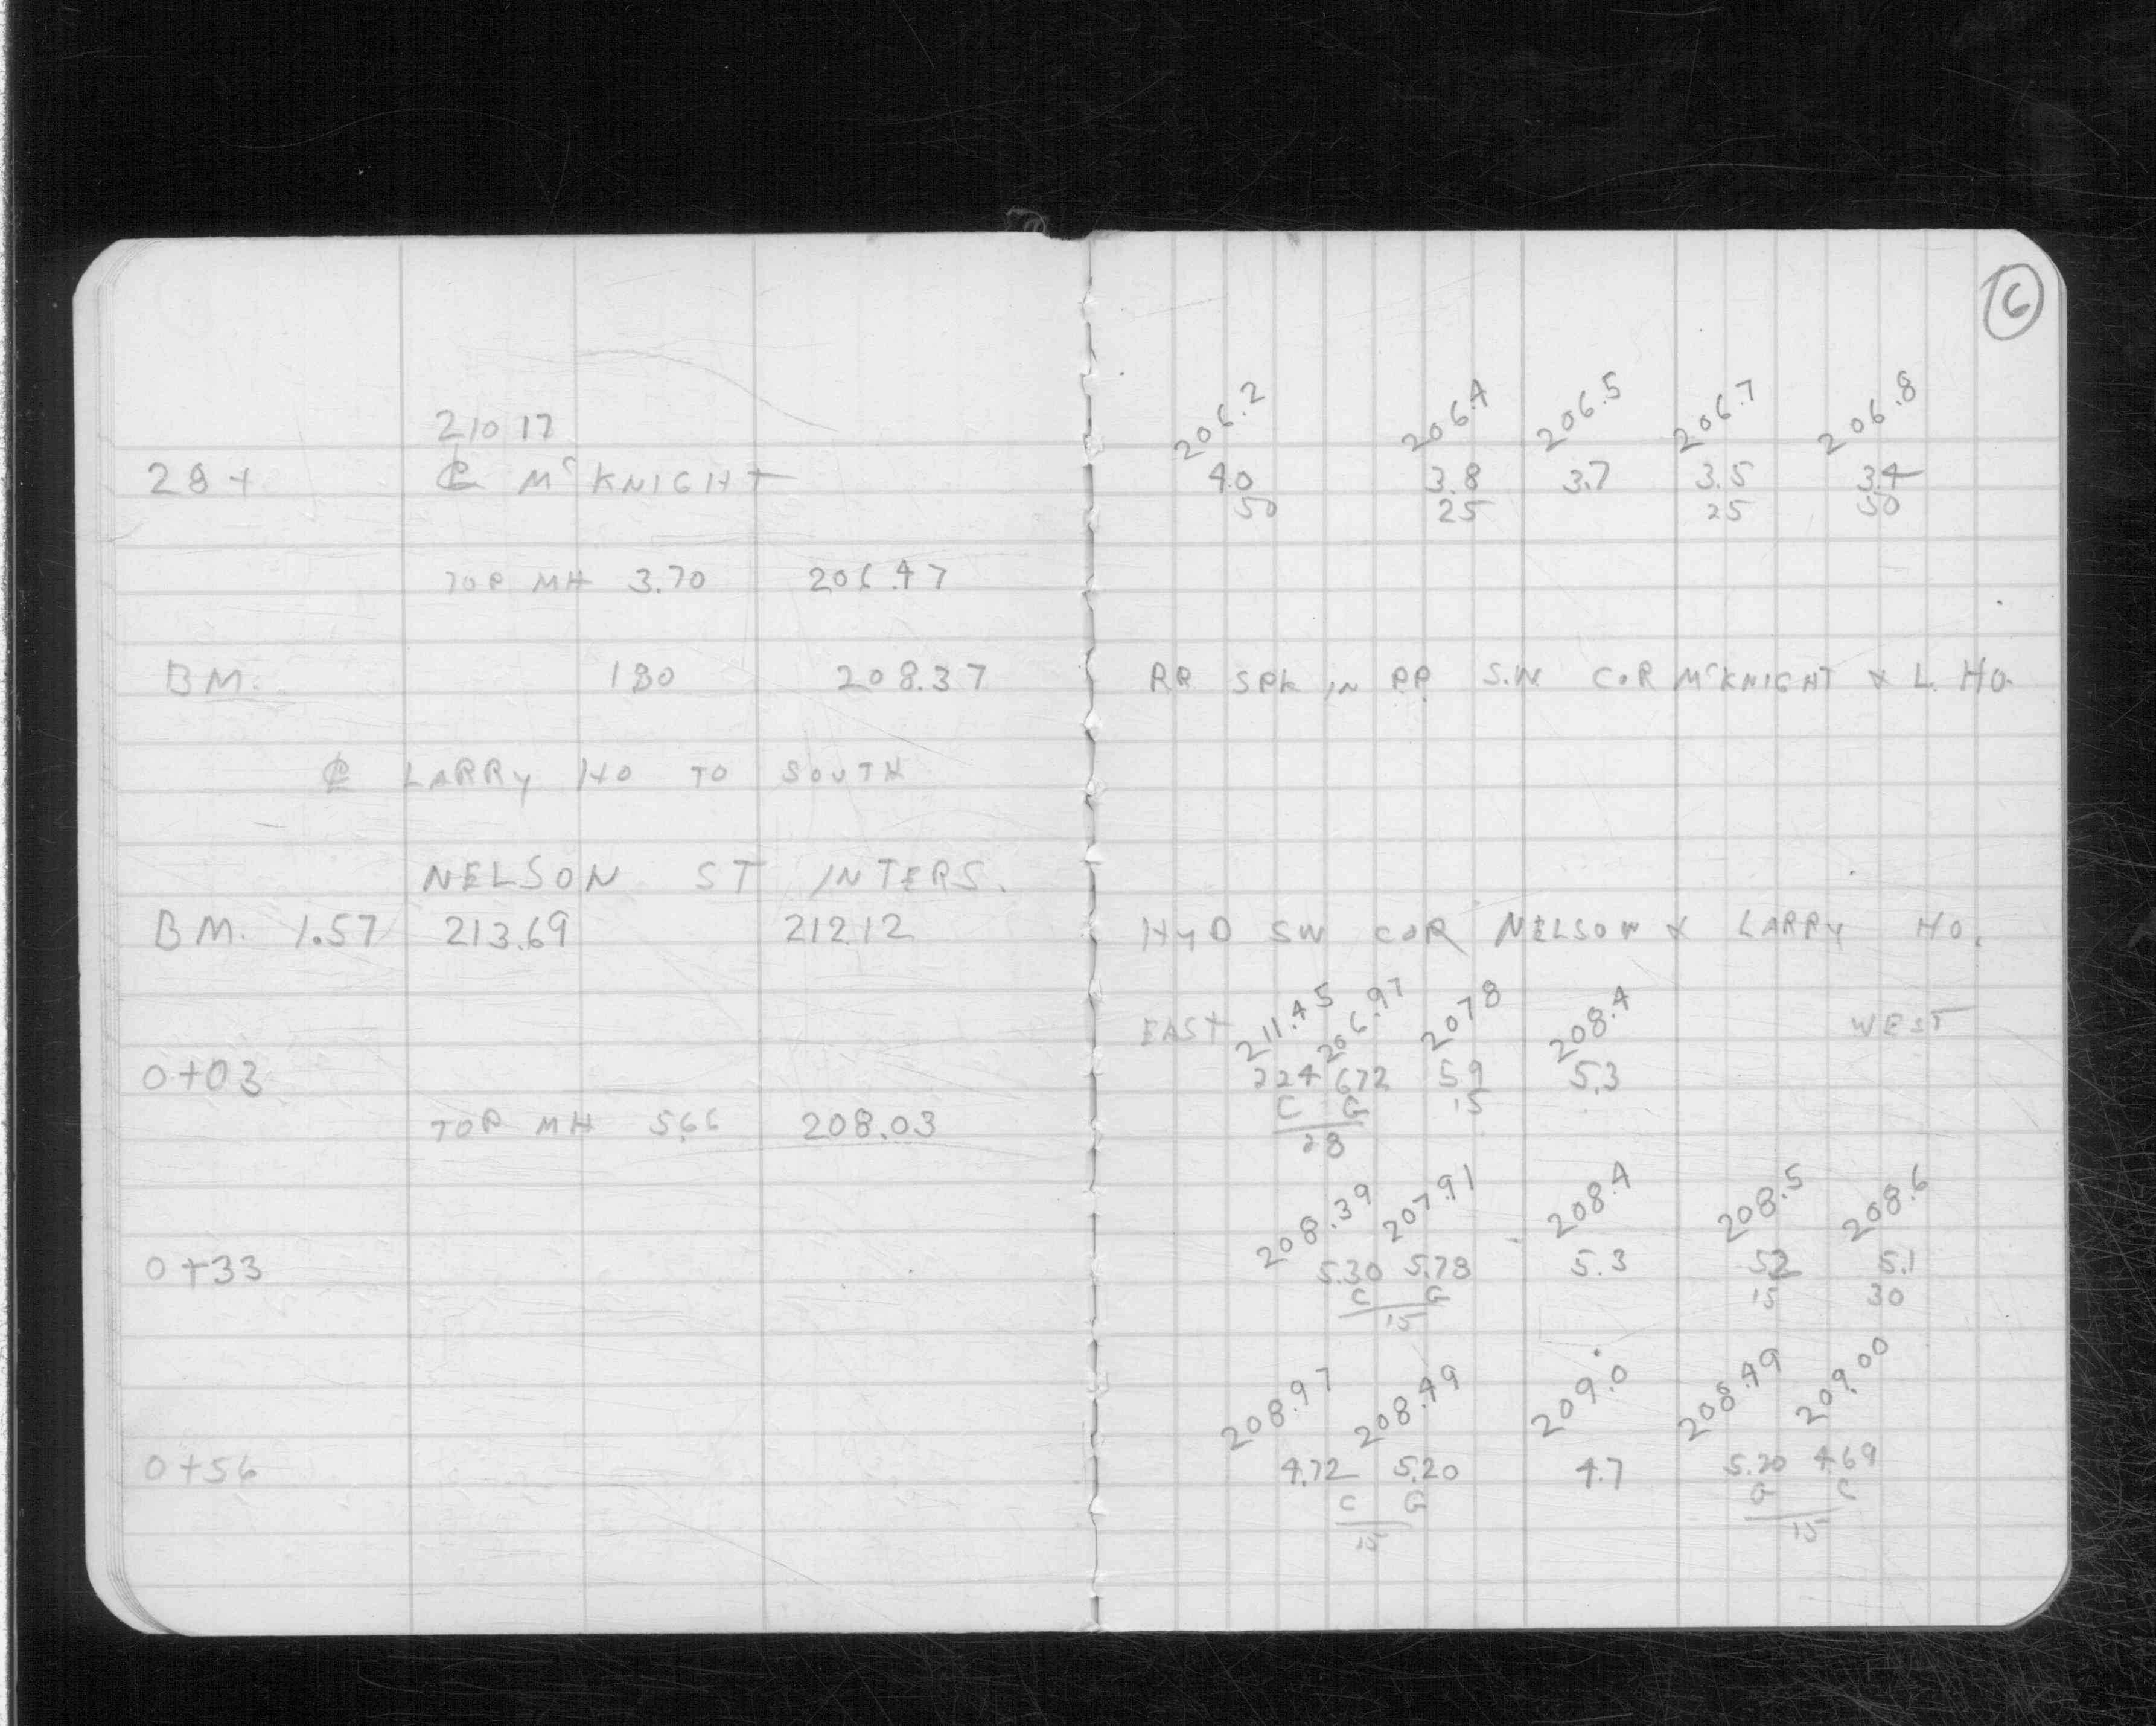 6
210 17
206.2 206.4 206.5 206.7 206.8
28+ ℄ McKNIGHT 4.0 3.8 3.7 3.5 3.4
50 25 25 50
TOP MH 3.70 206.47
BM. 180 208.37 RR SPK IN P.P. S.W. COR McKNIGHT & L. HO.
℄ LARRY HO TO SOUTH
NELSON ST INTERS.
BM. 1.57 213.69 212 12 HYD SW COR NELSON & LARRY HO.
EAST 211.45 206.97 207 8 208.4 WEST
0+03 224 672 59 5.3
C G 15
TOP MH 566 208.03
28
208.39 207.91 208.4 208.5 208.6
0+33 5.30 5.78 5.3 52 5.1
C G 15 30
15
208.97 208.49 209.0 208.49 209.00
0+56 4.72 5.20 4.7 5.20 4.69
C G G C
15 15